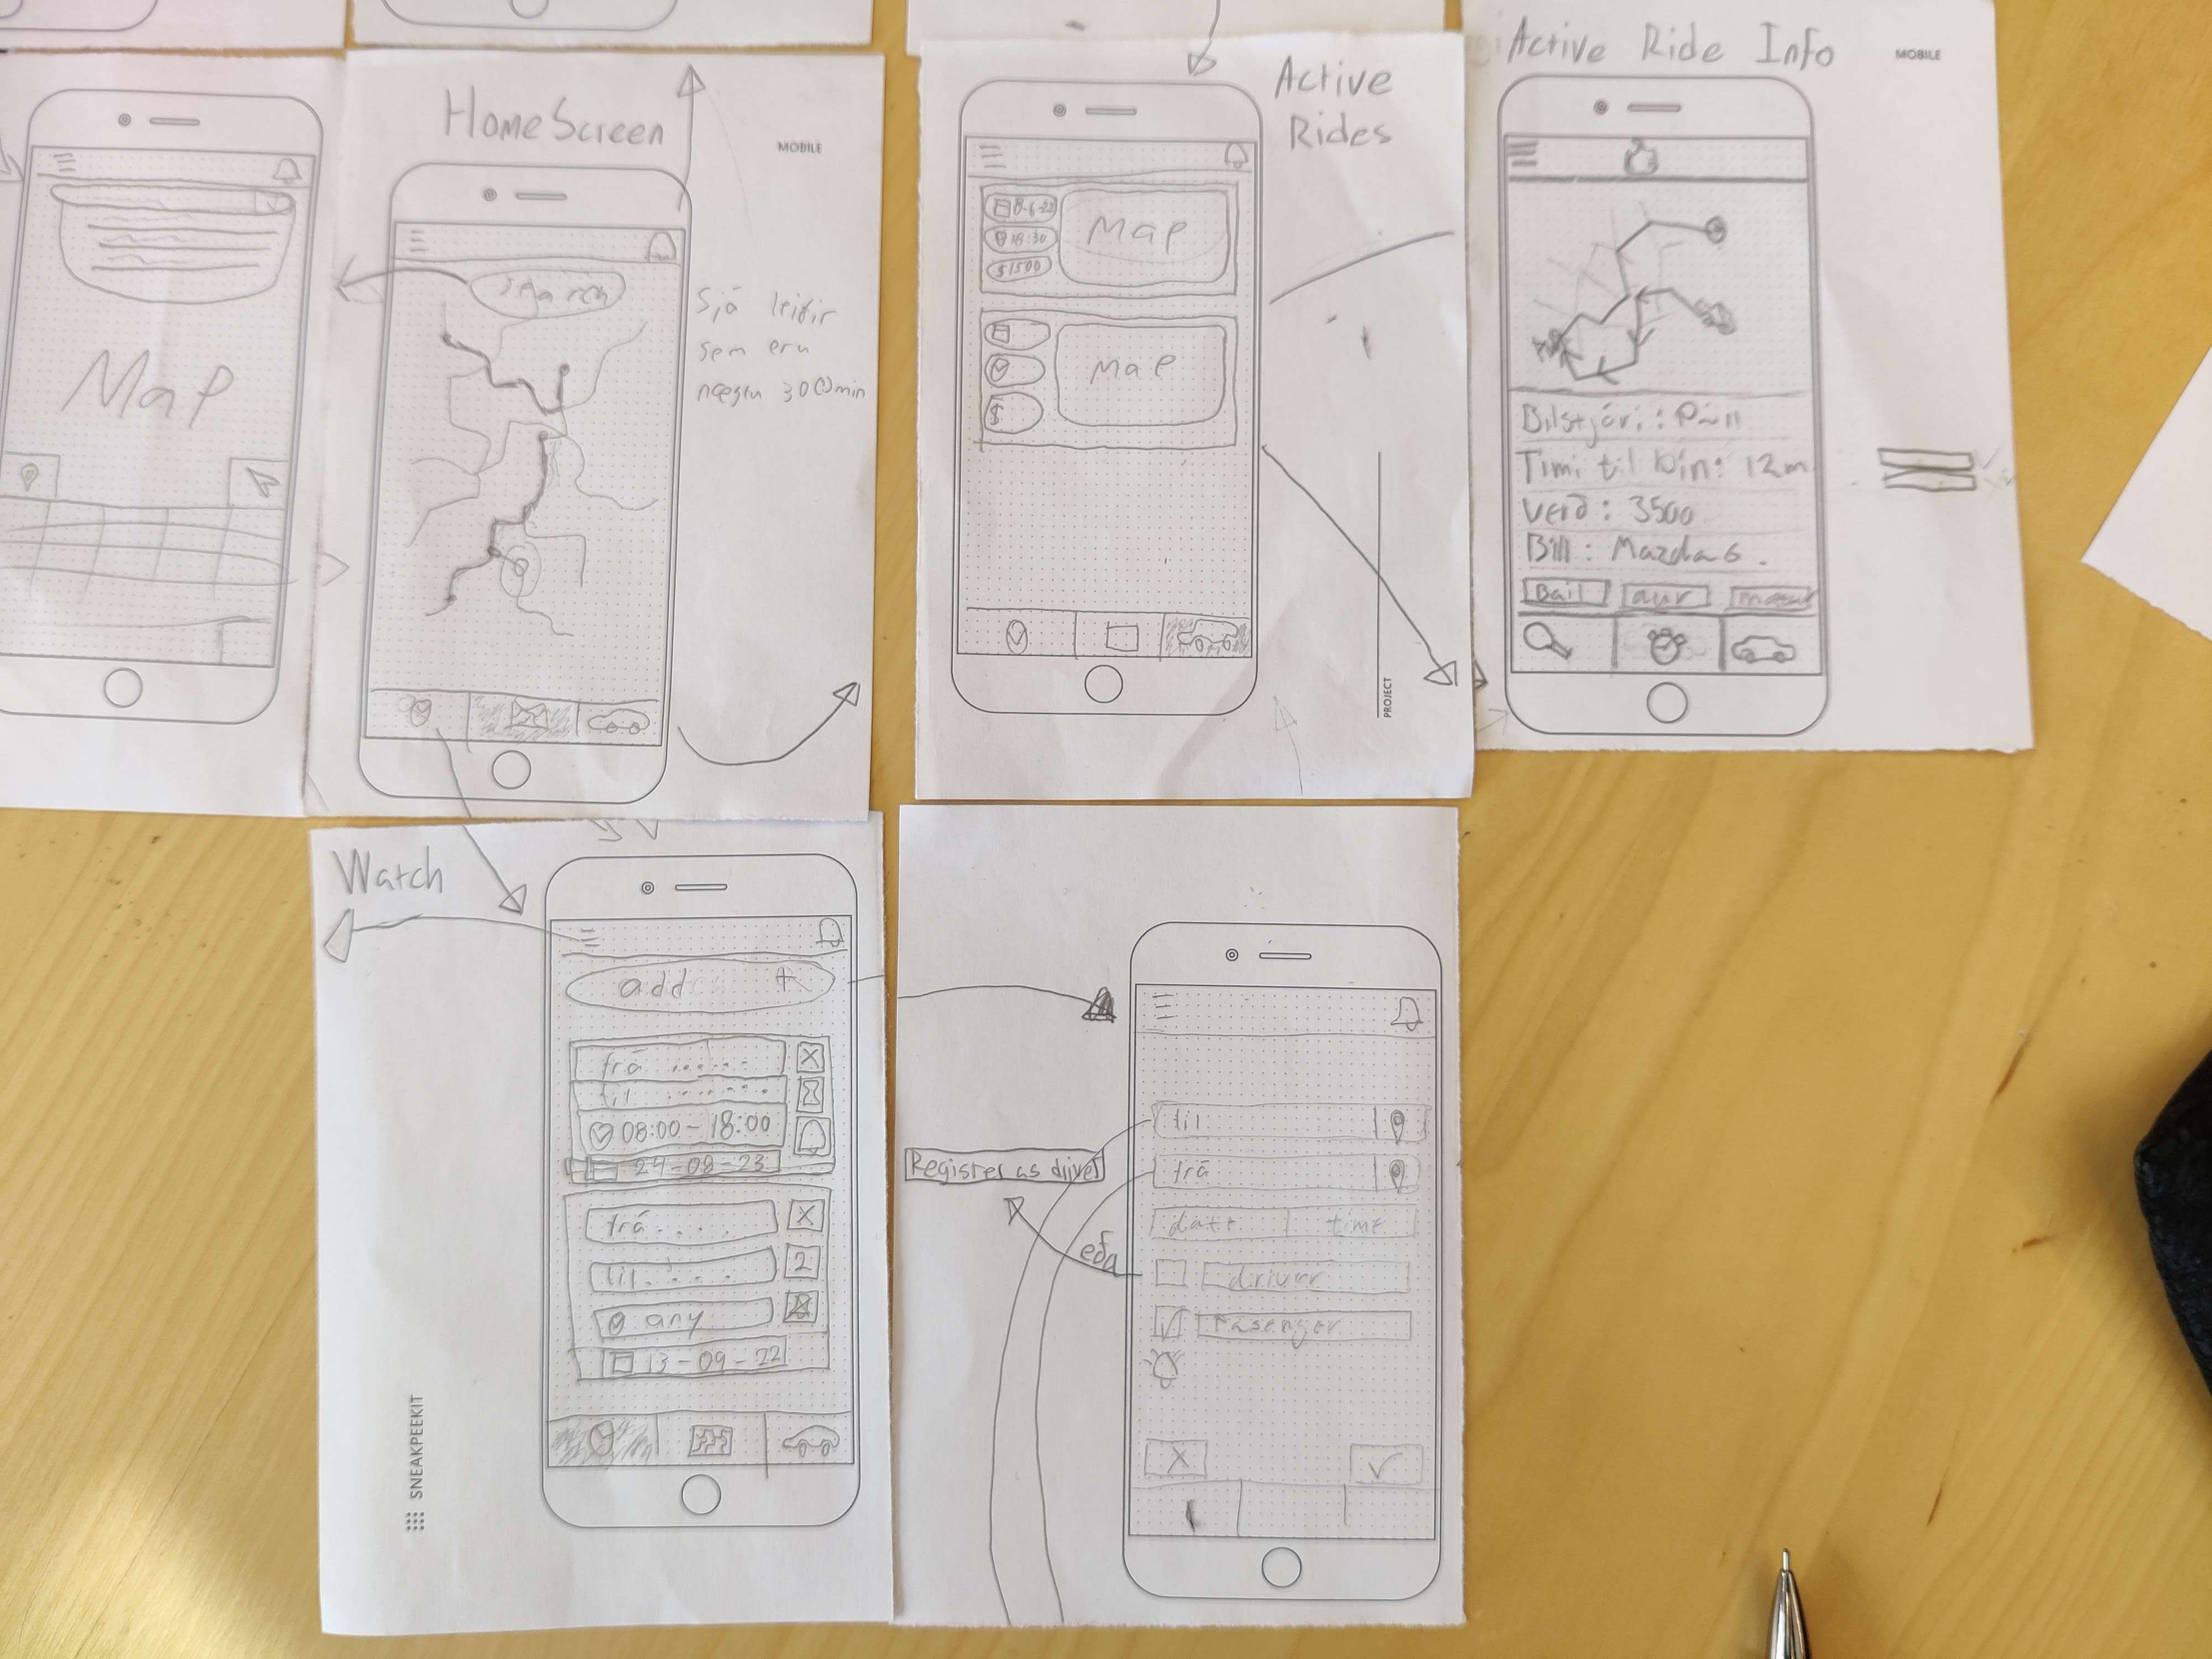 Home Screen
MOBILE
search
Sjá leiðir
sem eru
næstu 30 min
Map
Active
Rides
8-6-23
18:30
$1500
Map
Map
$
PROJECT
Active Ride Info
MOBILE
Bilstjóri: Páll
Timi til þin: 12m
Verð: 3500
Bill: Mazda 6.
Bail
aur
Watch
add +
frá ......
til ........
08:00 - 18:00
24-08-23
frá . . .
til . . . .
2
any
13-09-22
SNEAKPEEKIT
Register as driver
eða
til
frá
date
time
driver
Pasenger